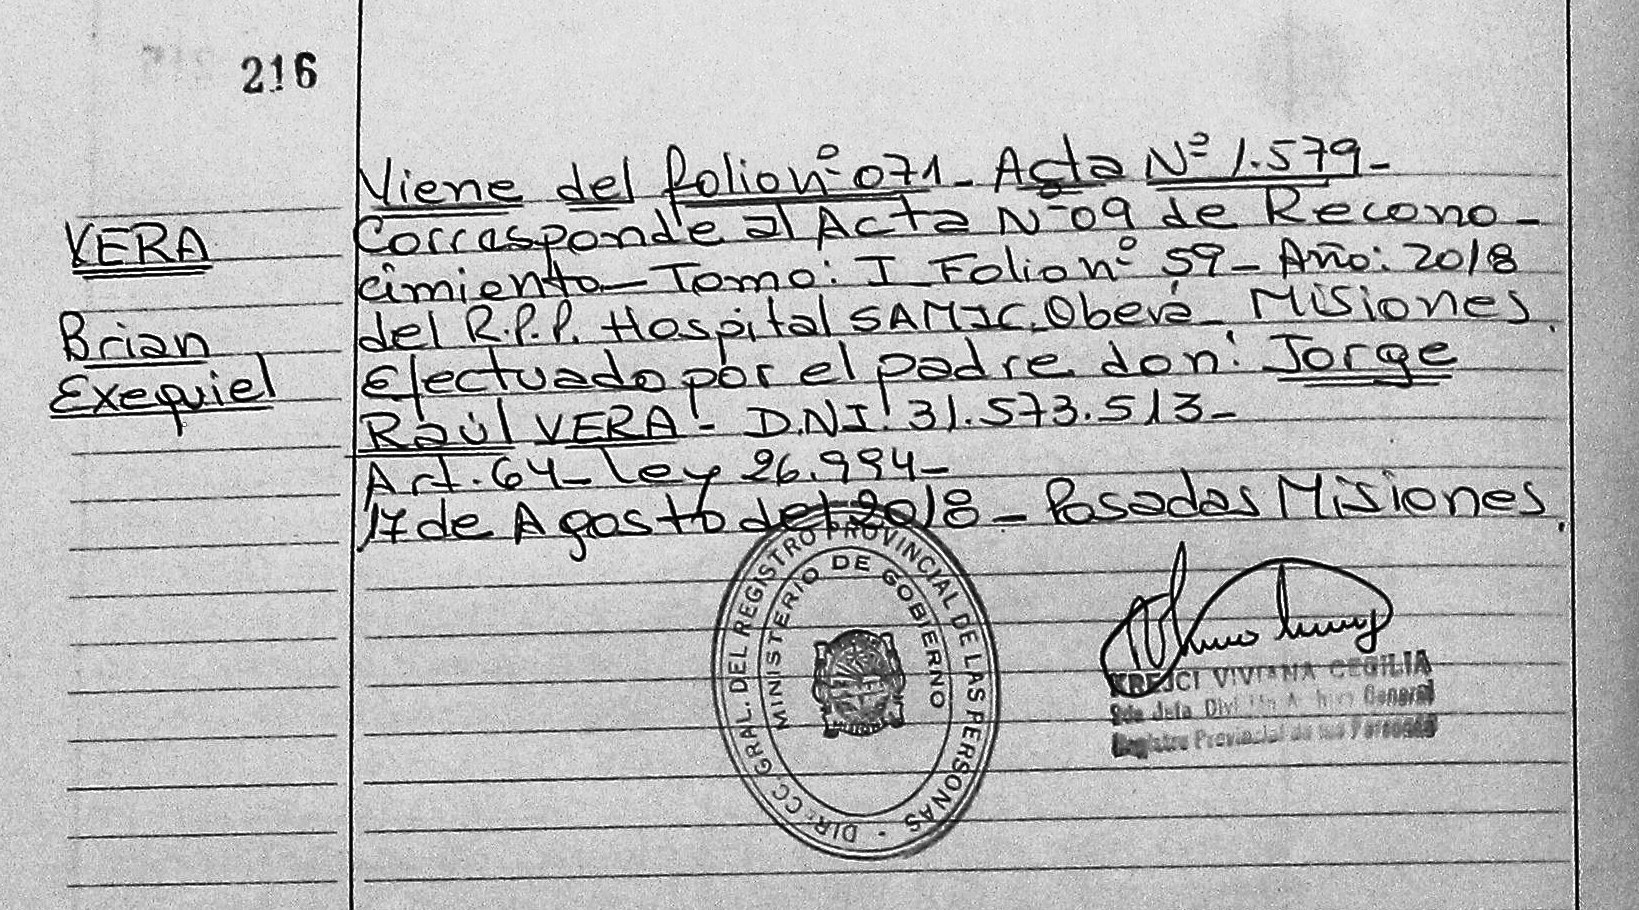 216
VERA
Brian
Exequiel
Viene del folio nº 071 - Acta Nº 1.579 -
Corresponde al Acta Nº 09 de Recono -
cimiento - Tomo: I Folio nº 59 - Año: 2018
del R.P.P. Hospital SAMIC. Oberá - Misiones.
Efectuado por el padre don: Jorge
Raúl VERA - D.N.I. 31.573.513 -
Art. 64 - Ley 26.994 -
17 de Agosto del 2018 - Posadas Misiones.
DIR. CC. GRAL. DEL REGISTRO PROVINCIAL DE LAS PERSONAS -
MINISTERIO DE GOBIERNO
KREJCI VIVIANA CECILIA
General
Registro Provincial de las Personas